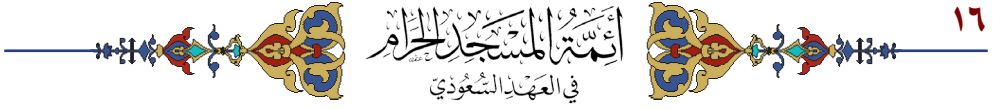 ١٦
أَئِمَّةُ المَسْجِدِ الحَرَامِ
فِي العَهْدِ السُّعُودِيّ